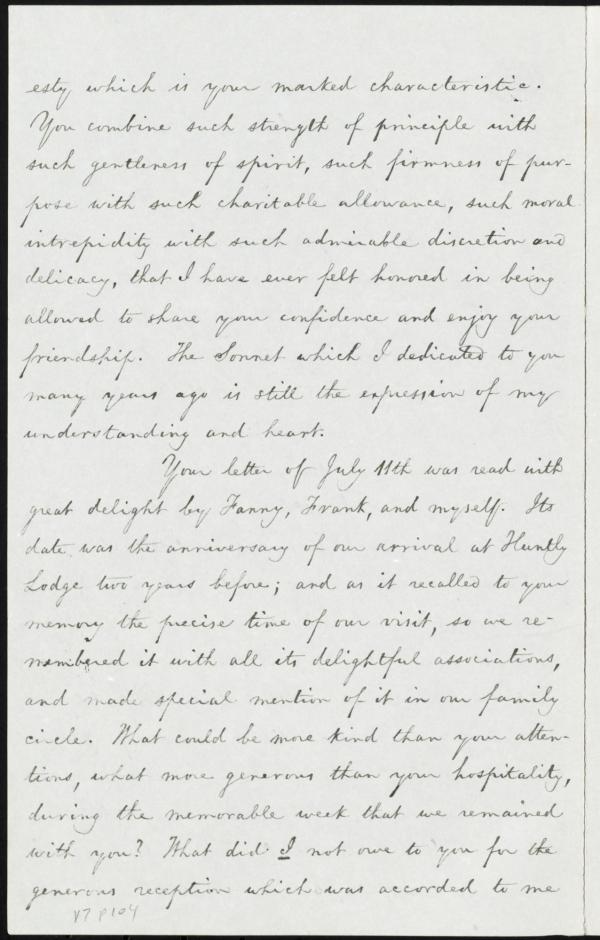 esty which is your marked characteristic.
You combine such strength of principle with
such gentleness of spirit, such firmness of pur-
pose with such charitable allowance, such moral
intrepidity with such admirable discretion and
delicacy, that I have ever felt honored in being
allowed to share your confidence and enjoy your
friendship. The Sonnet which I dedicated to you
many years ago is still the expression of my
understanding and heart.
Your letter of July 11th was read with
great delight by Fanny, Frank, and myself. Its
date was the anniversary of our arrival at Huntly
Lodge two years before; and as it recalled to your
memory the precise time of our visit, so we re-
membered it with all its delightful associations,
and made special mention of it in our family
circle. What could be more kind than your atten-
tions, what more generous than your hospitality,
during the memorable week that we remained
with you? What did I not owe to you for the
generous reception which was accorded to me
V7 P104